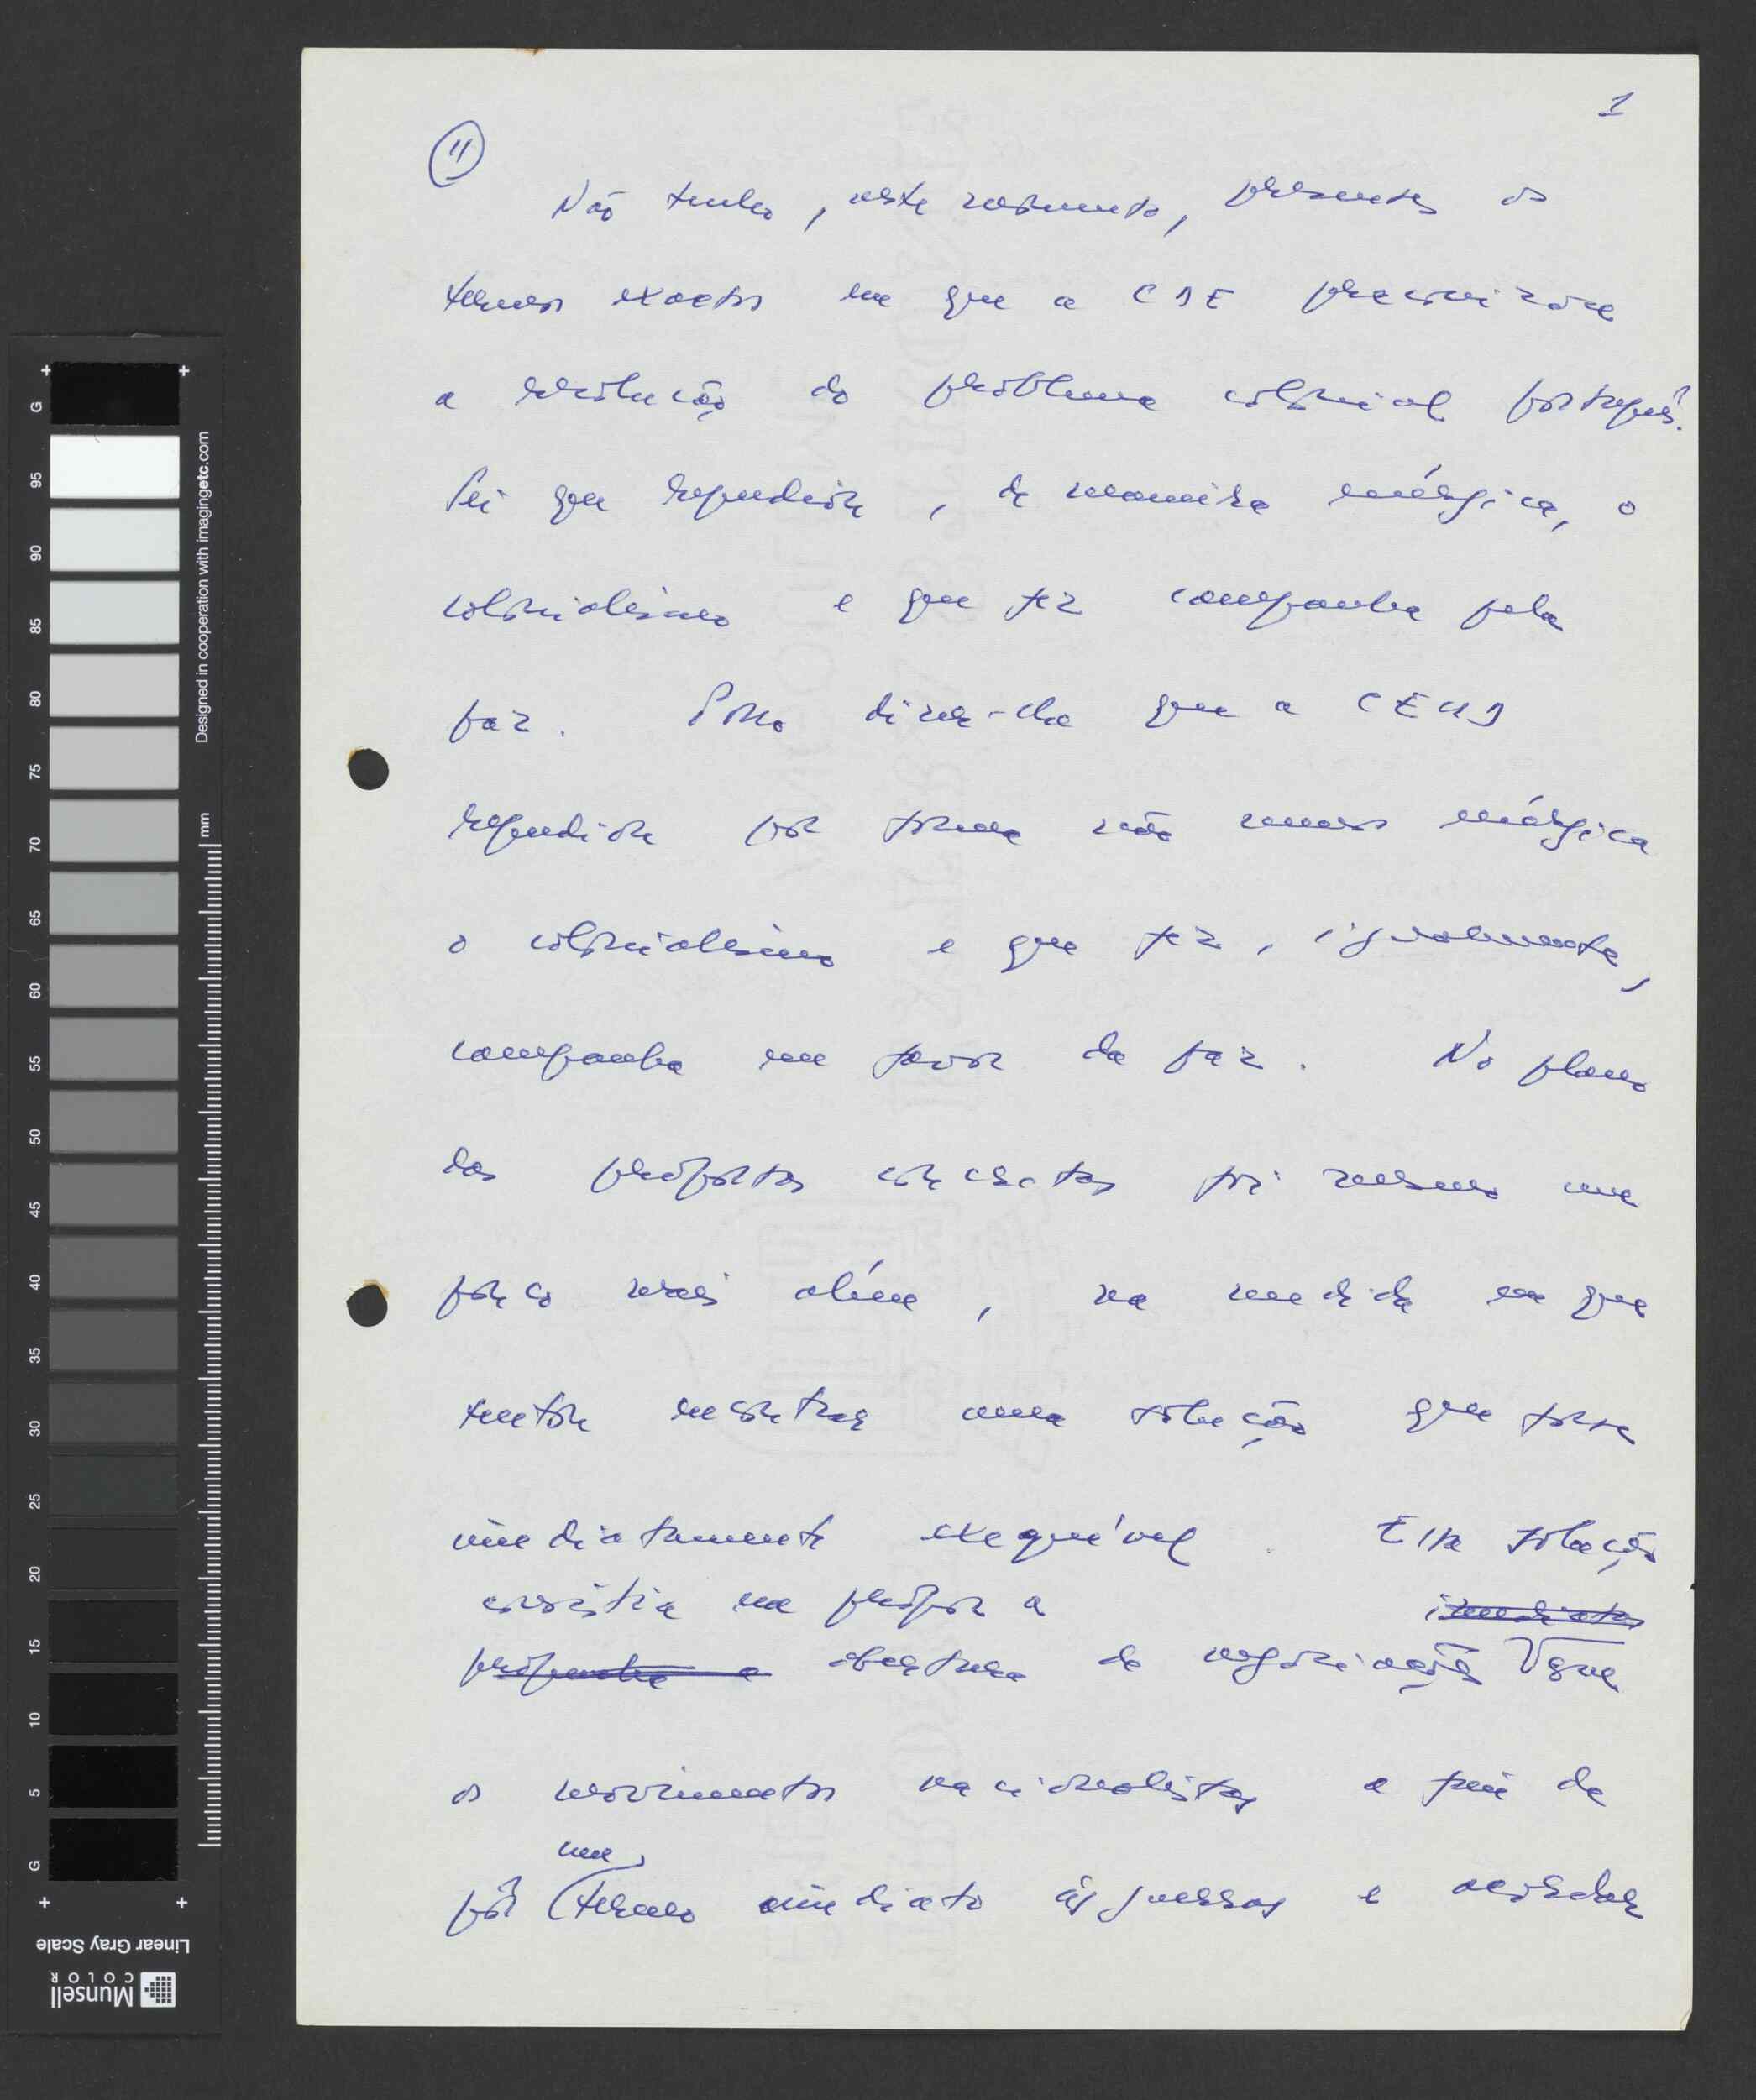 1
11
Não tenho, neste momento, presentes os
termos exactos em que a CDE preconizou
a resolução do problema colonial português.
Sei que repudiou, de maneira enérgica, o
colonialismo e que fez campanha pela
paz. Posso dizer-lhe que a CEUD
repudiou por forma não menos enérgica
o colonialismo e que fez, igualmente,
campanha em favor da paz. No plano
das propostas concretas foi mesmo um
pouco mais além, na medida em que
tentou encontrar uma solução que fosse
imediatamente exequível. Essa solução
consistia em propor a imediatas
propunha a abertura de negociações com
os movimentos nacionalistas a fim de
um
pôr termo imediato às guerras e acordar
G 95 90 85 80 75 70 65 60 55 50 45 40 35 30 25 20 15 10 5 G
Designed in cooperation with imagingetc.com
mm
Munsell
COLOR
Linear Gray Scale